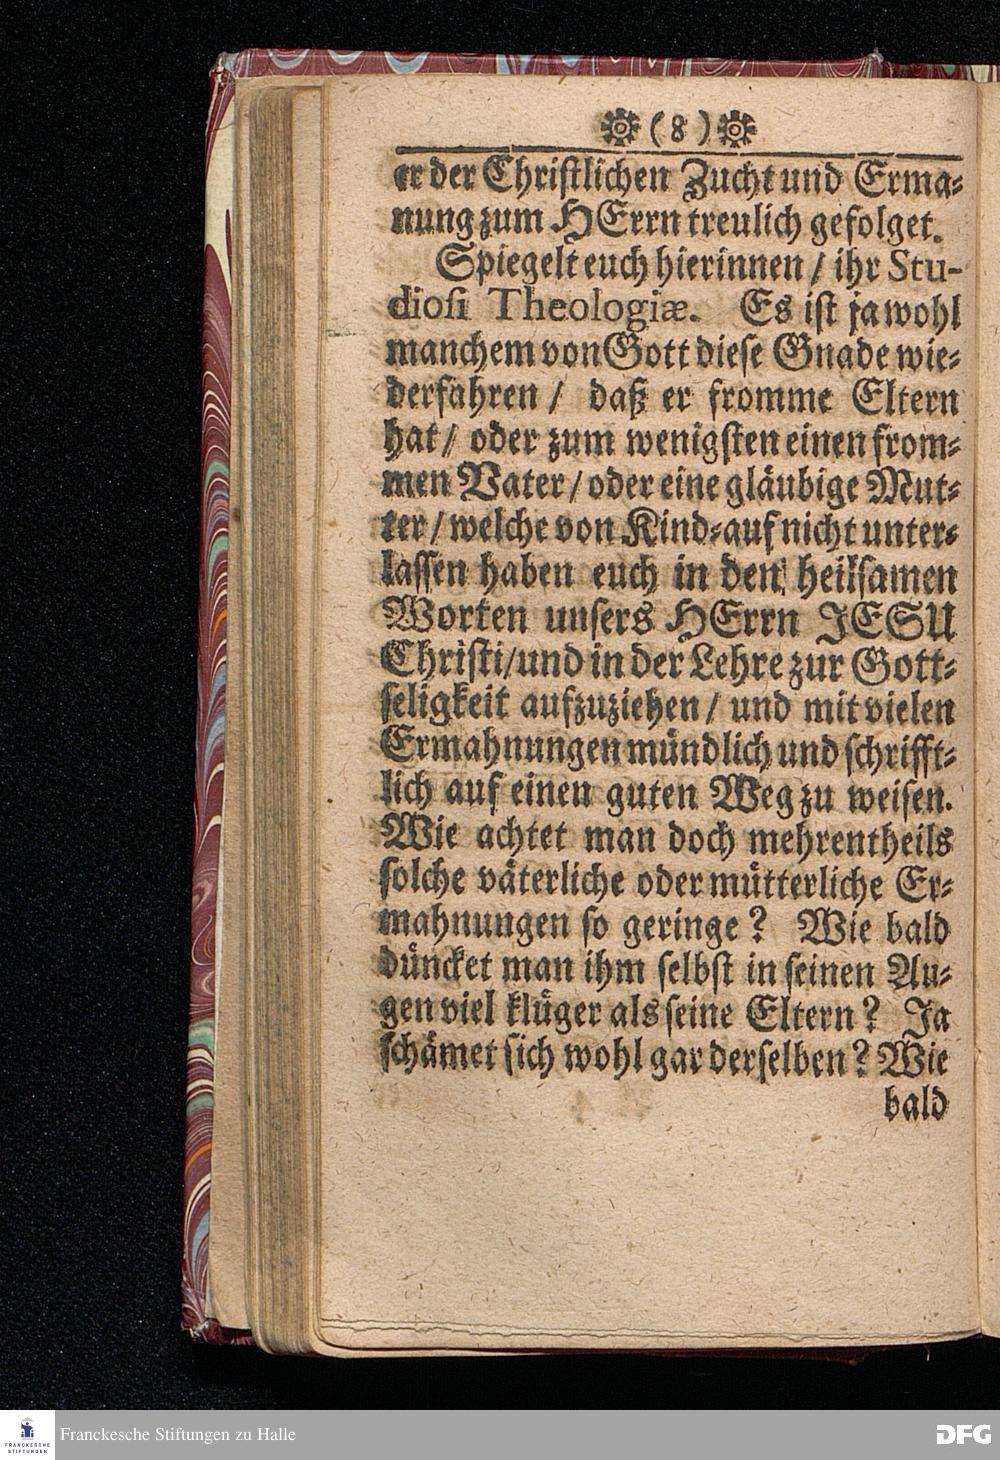 (8)
er der Christlichen Zucht und Erma-
nung zum HErrn treulich gefolget.
Spiegelt euch hierinnen / ihr Stu-
diosi Theologiæ. Es ist ja wohl
manchem von Gott diese Gnade wie-
derfahren / daß er fromme Eltern
hat / oder zum wenigsten einen from-
men Vater / oder eine gläubige Mut-
ter / welche von Kind-auf nicht unter-
lassen haben euch in den heilsamen
Worten unsers HErrn JESU
Christi / und in der Lehre zur Gott-
seligkeit aufzuziehen / und mit vielen
Ermahnungen mündlich und schrifft-
lich auf einen guten Weg zu weisen.
Wie achtet man doch mehrentheils
solche väterliche oder mütterliche Er-
mahnungen so geringe? Wie bald
düncket man ihm selbst in seinen Au-
gen viel klüger als seine Eltern? Ja
schämet sich wohl gar derselben? Wie
bald
FRANCKESCHE
STIFTUNGEN
Franckesche Stiftungen zu Halle
DFG